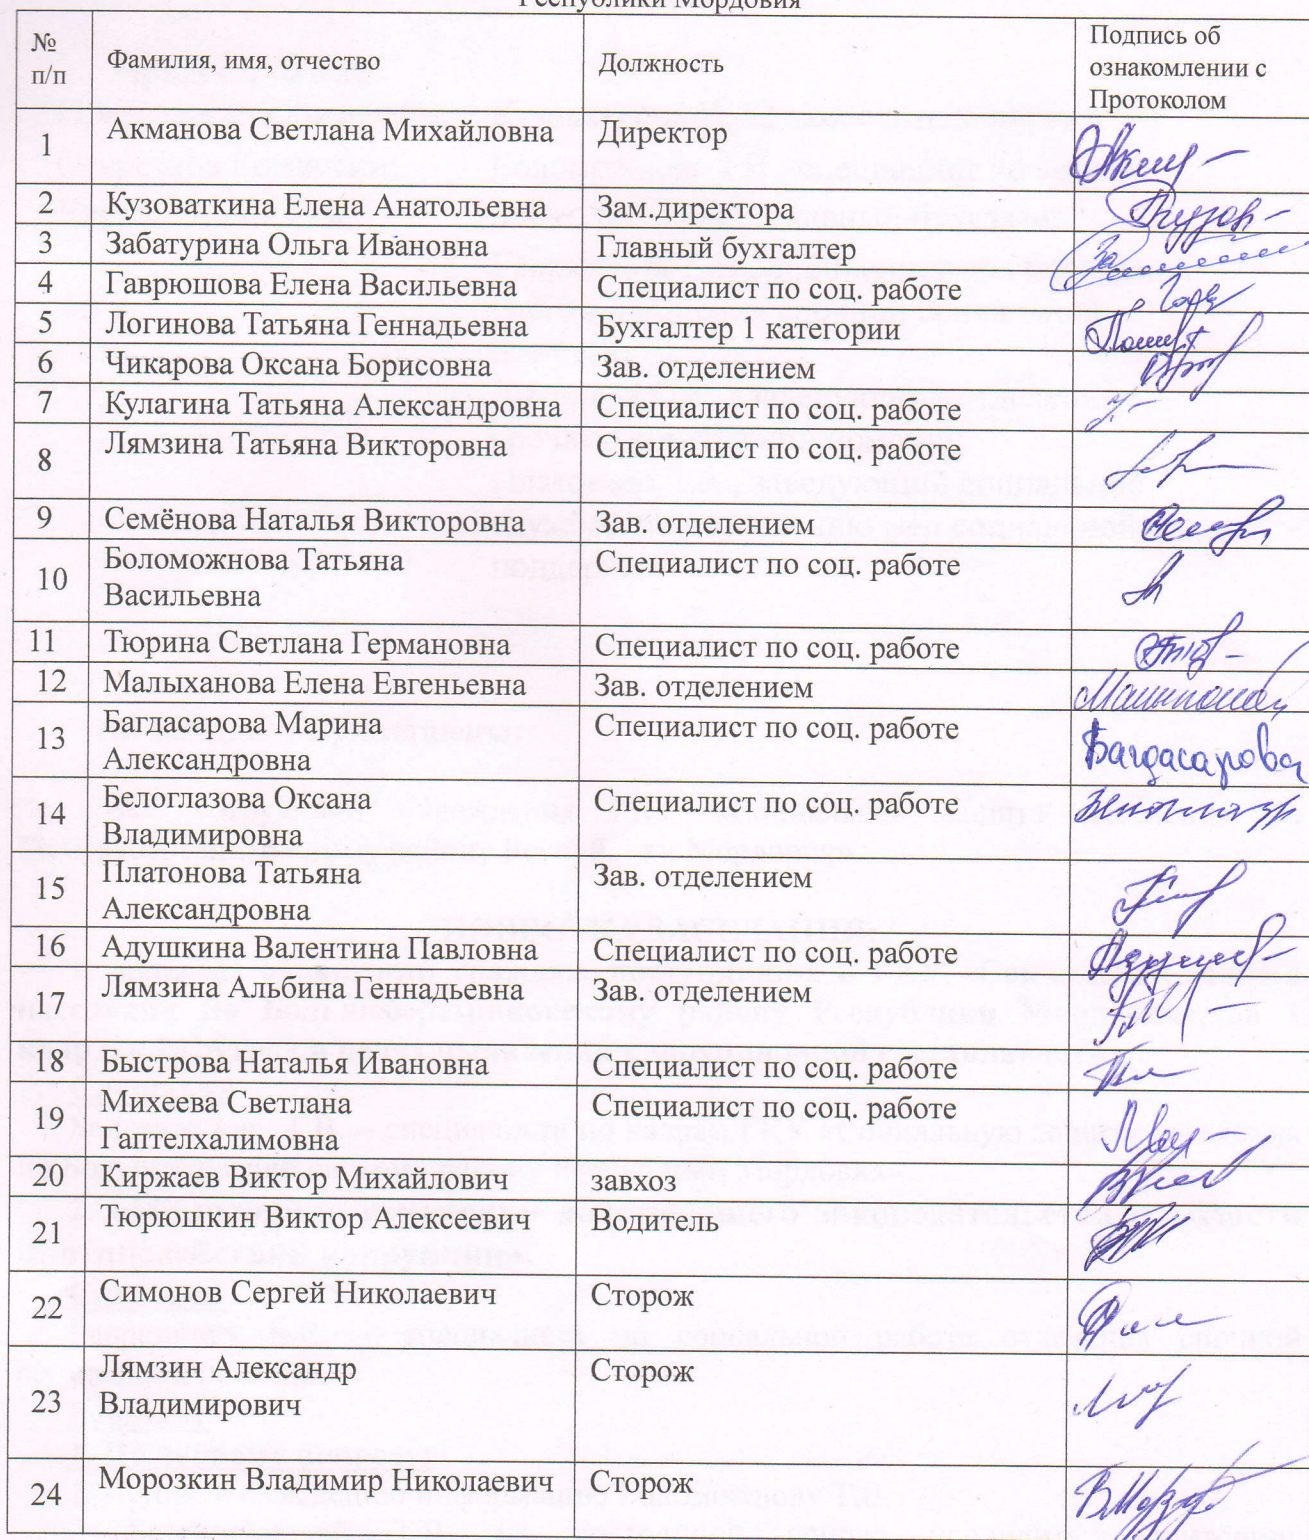 Республики Мордовия
№ п/п Фамилия, имя, отчество Должность Подпись об ознакомлении с Протоколом
1 Акманова Светлана Михайловна Директор
2 Кузоваткина Елена Анатольевна Зам.директора
3 Забатурина Ольга Ивановна Главный бухгалтер
4 Гаврюшова Елена Васильевна Специалист по соц. работе
5 Логинова Татьяна Геннадьевна Бухгалтер 1 категории
6 Чикарова Оксана Борисовна Зав. отделением
7 Кулагина Татьяна Александровна Специалист по соц. работе
8 Лямзина Татьяна Викторовна Специалист по соц. работе
9 Семёнова Наталья Викторовна Зав. отделением
10 Боломожнова Татьяна Васильевна Специалист по соц. работе
11 Тюрина Светлана Германовна Специалист по соц. работе
12 Малыханова Елена Евгеньевна Зав. отделением
13 Багдасарова Марина Александровна Специалист по соц. работе Багдасарова
14 Белоглазова Оксана Владимировна Специалист по соц. работе
15 Платонова Татьяна Александровна Зав. отделением
16 Адушкина Валентина Павловна Специалист по соц. работе
17 Лямзина Альбина Геннадьевна Зав. отделением
18 Быстрова Наталья Ивановна Специалист по соц. работе
19 Михеева Светлана Гаптелхалимовна Специалист по соц. работе
20 Киржаев Виктор Михайлович завхоз
21 Тюрюшкин Виктор Алексеевич Водитель
22 Симонов Сергей Николаевич Сторож
23 Лямзин Александр Владимирович Сторож
24 Морозкин Владимир Николаевич Сторож